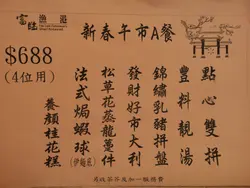 富臨漁港
新春午市A餐
$688
(4位用)
點心雙拼
豐料靚湯
錦繡乳豬拼盤
發財好市大利
松草花蒸龍躉件
法式焗蝦球(伊麵底)
養顏桂花糕